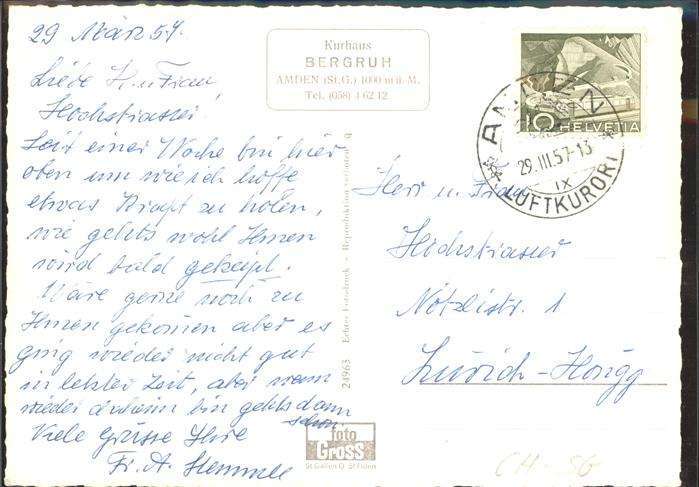 29 März 57.
Liebe H. u Frau
Höchstrasser!
Seit einer Woche bin hier
oben um wie ich hoffe
etwas Kraft zu holen,
wie gehts wohl Ihnen
wird bald gekeipt.
Wäre gerne noch zu
Ihnen gekommen aber es
ging wieder nicht gut
in letzter Zeit, aber wenn
wieder daheim bin gehts dann
schon
Viele Grüsse Ihre
Fr. A. Hemmle
Kurhaus
BERGRUH
AMDEN (St.G.) 1000 m ü. M.
Tel. (058) 4 62 12
24963 Echter Fotodruck - Reproduktion verboten
foto
Gross
St Gallen O St Fiden
10 HELVETIA
AMDEN
29.III.57-13
IX
LUFTKURORT
Herr u. Frau
Höchstrasser
Nötzlistr. 1
Zürich-Höngg
CH-SG